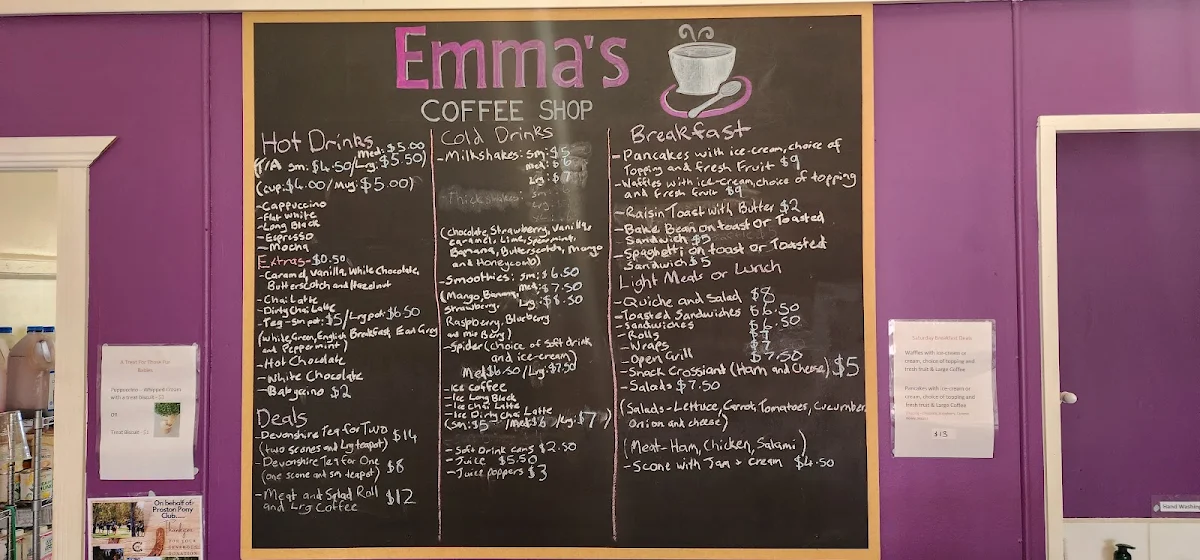 Emma's
COFFEE SHOP
Hot Drinks
Med: $5.00
(T/A sm: $4.50/Lrg: $5.50)
(cup: $4.00/Mug: $5.00)
-Cappuccino
-Flat White
-Long Black
-Espresso
-Mocha
Extras-$0.50
-Caramel, Vanilla, White Chocolate,
Butterscotch and Hazelnut
-Chai Latte
-Dirty Chai Latte
-Tea-sm pot: $5/Lrg pot: $6.50
(White, Green, English Breakfast, Earl Grey
and Peppermint)
-Hot Chocolate
-White Chocolate
-Babycino $2
Deals
-Devonshire Tea for Two $14
(two scones and Lrg teapot)
-Devonshire Tea for One $8
(one scone and sm teapot)
-Meat and Salad Roll $12
and Lrg Coffee
Cold Drinks
-Milkshakes: sm: $5
med: $6
Lrg: $7
Thickshakes:
(chocolate, Strawberry, Vanilla,
caramel, Lime, Spearmint,
Banana, Butterscotch, Mango
and Honeycomb)
-Smoothies: sm: $6.50
med: $7.50
(Mango, Banana, Lrg: $8.50
Strawberry,
Raspberry, Blueberry
and mix Berry)
-Spider (choice of soft drink
and ice-cream)
Med $6.50/Lrg: $7.50
-Ice coffee
-Ice Long Black
-Ice Chai Latte
-Ice Dirty Chai Latte
(sm: $5 /Med $6 /Lrg: $7)
-Soft Drink cans $2.50
-Juice $5.50
-Juice poppers $3
Breakfast
-Pancakes with ice-cream, choice of
Topping and fresh Fruit $9
-Waffles with ice-cream, choice of topping
and fresh fruit $9
-Raisin Toast with Butter $2
-Bake Bean on toast or Toasted
Sandwich $5
-Spaghetti on toast or Toasted
Sandwich $5
Light Meals or Lunch
-Quiche and Salad $8
-Toasted Sandwiches $6.50
-Sandwiches $6.50
-Rolls $7
-Wraps $7
-Open Grill $7.50
-Snack Crossiant (Ham and Cheese) $5
-Salads $7.50
(Salads-Lettuce, Carrot, Tomatoes, Cucumber,
Onion and cheese)
(Meat-Ham, Chicken, Salami)
-Scone with Jam + cream $4.50
Puppuccino - Whipped Cream
with a treat Biscuit
OR
Treat Biscuit
On behalf of
Proston Pony
Club.....
Saturday Breakfast Deals
Waffles with ice-cream or
cream, choice of topping and
fresh fruit & Large Coffee
Pancakes with ice-cream or
cream, choice of topping and
fresh fruit & Large Coffee
$13
Hand Washing